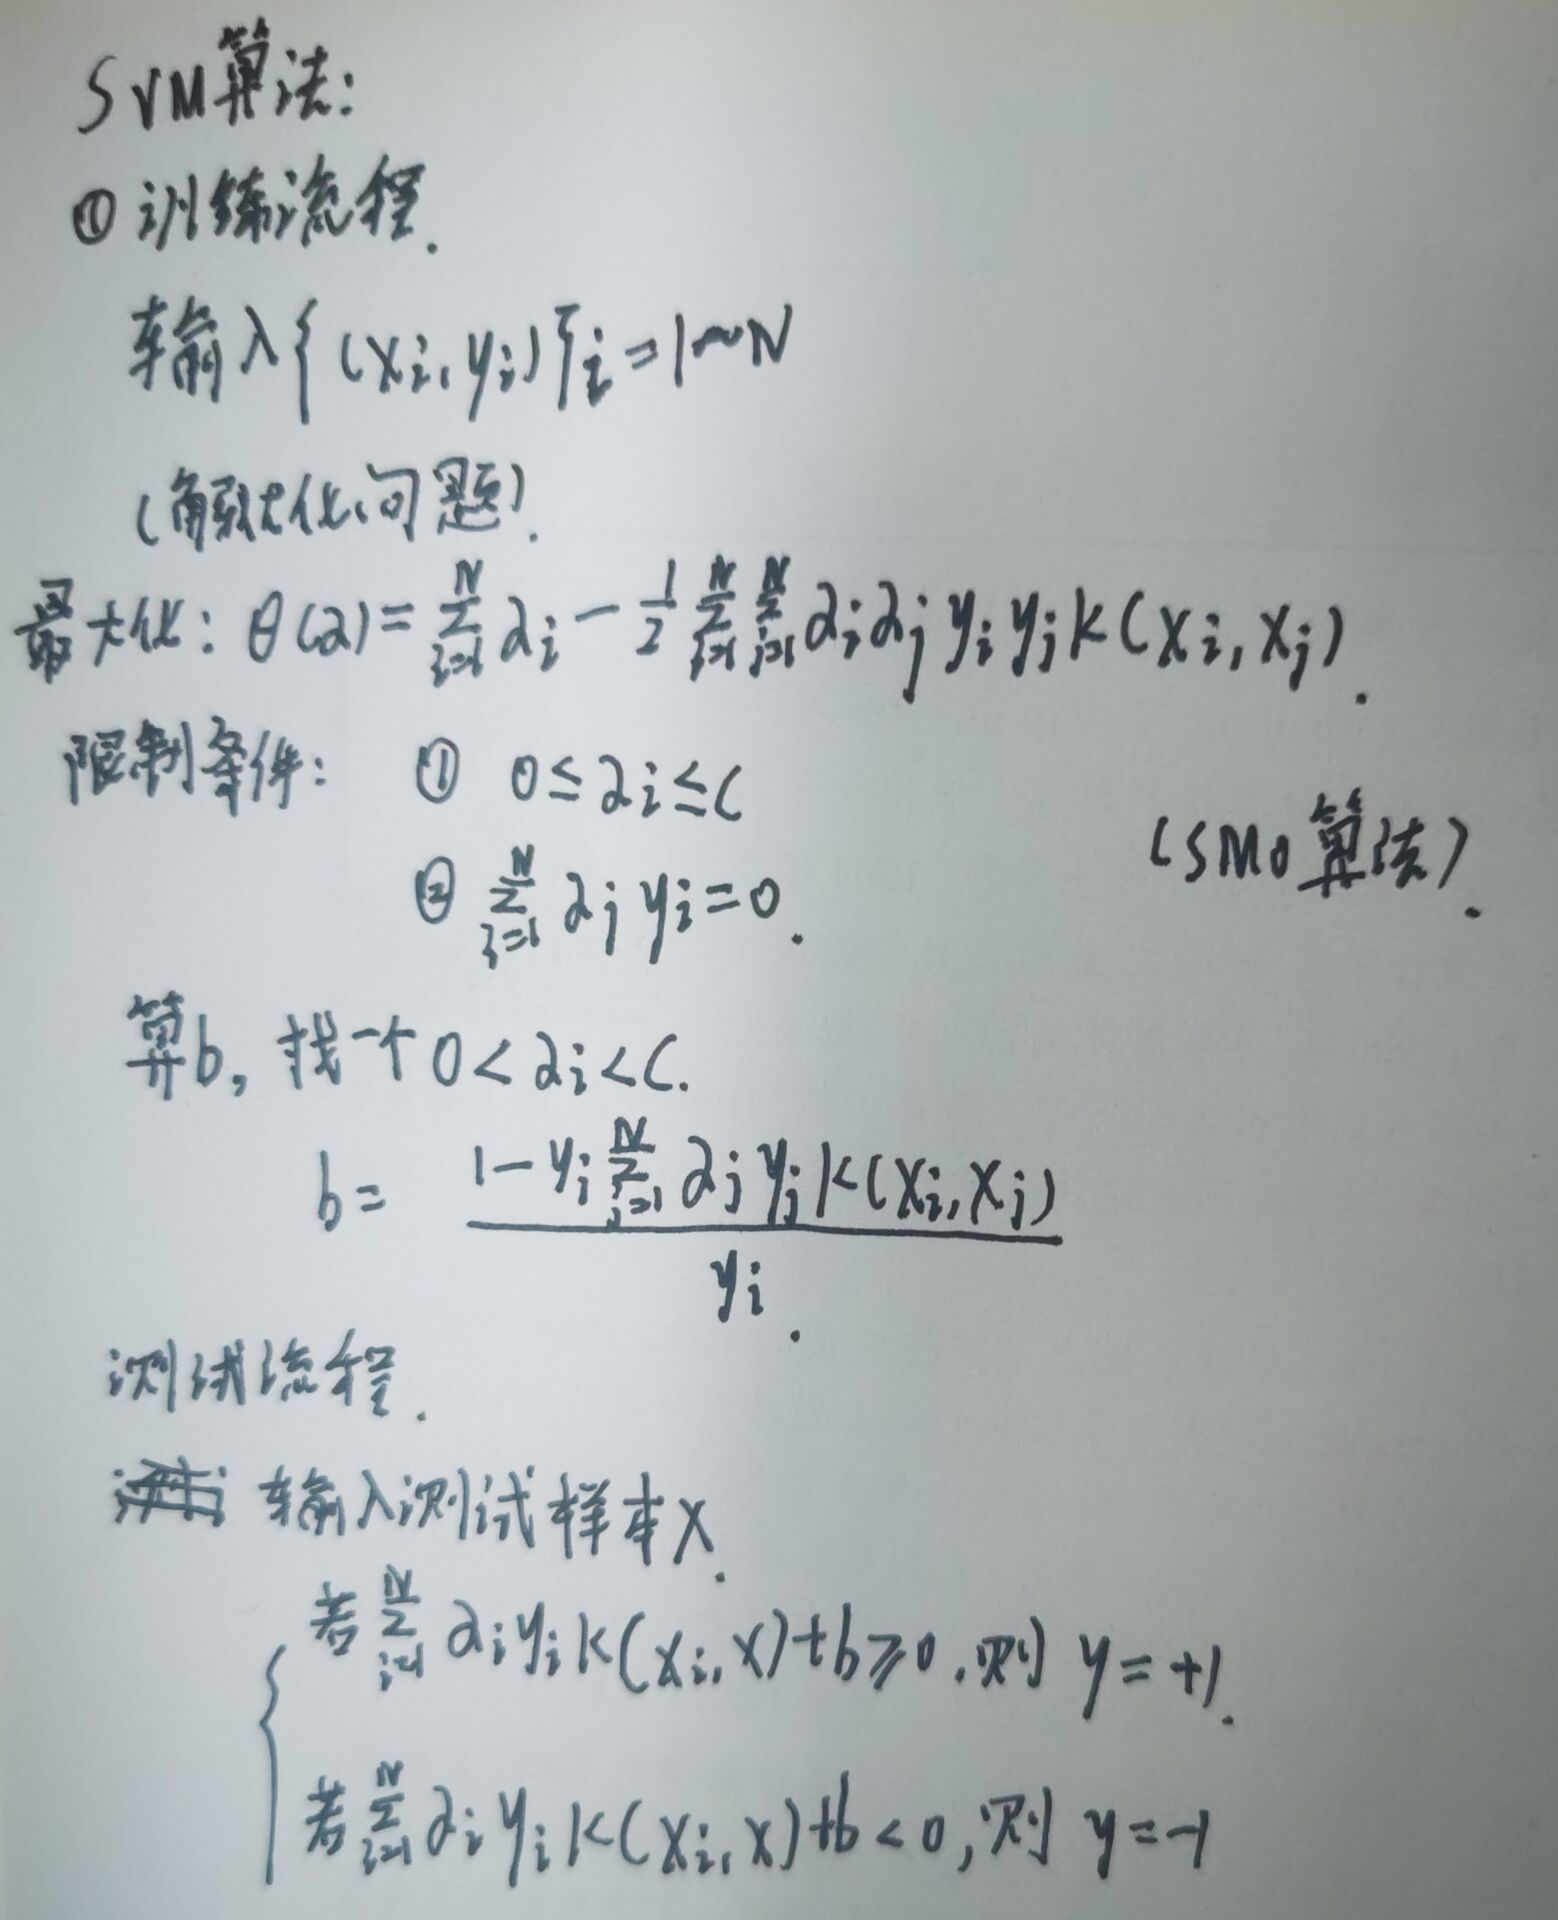 SVM算法:
① 训练流程.
输入{(xi, yi)}i=1~N
(解优化问题).
最大化: θ(α)=∑_{i=1}^{N} αi - 1/2 ∑_{i=1}^{N} ∑_{j=1}^{N} αiαj yi yj k(xi, xj).
限制条件: ① 0≤αi≤C
(SMO算法).
② ∑_{i=1}^{N} αj yi=0.
算b, 找一个 0<αi<C.
b= (1-yi ∑_{j=1}^{N} αj yj k(xi, xj)) / yi.
测试流程.
输入测试样本X.
若 ∑_{i=1}^{N} αi yi k(xi, x)+b≥0, 则 y=+1.
若 ∑_{i=1}^{N} αi yi k(xi, x)+b<0, 则 y=-1